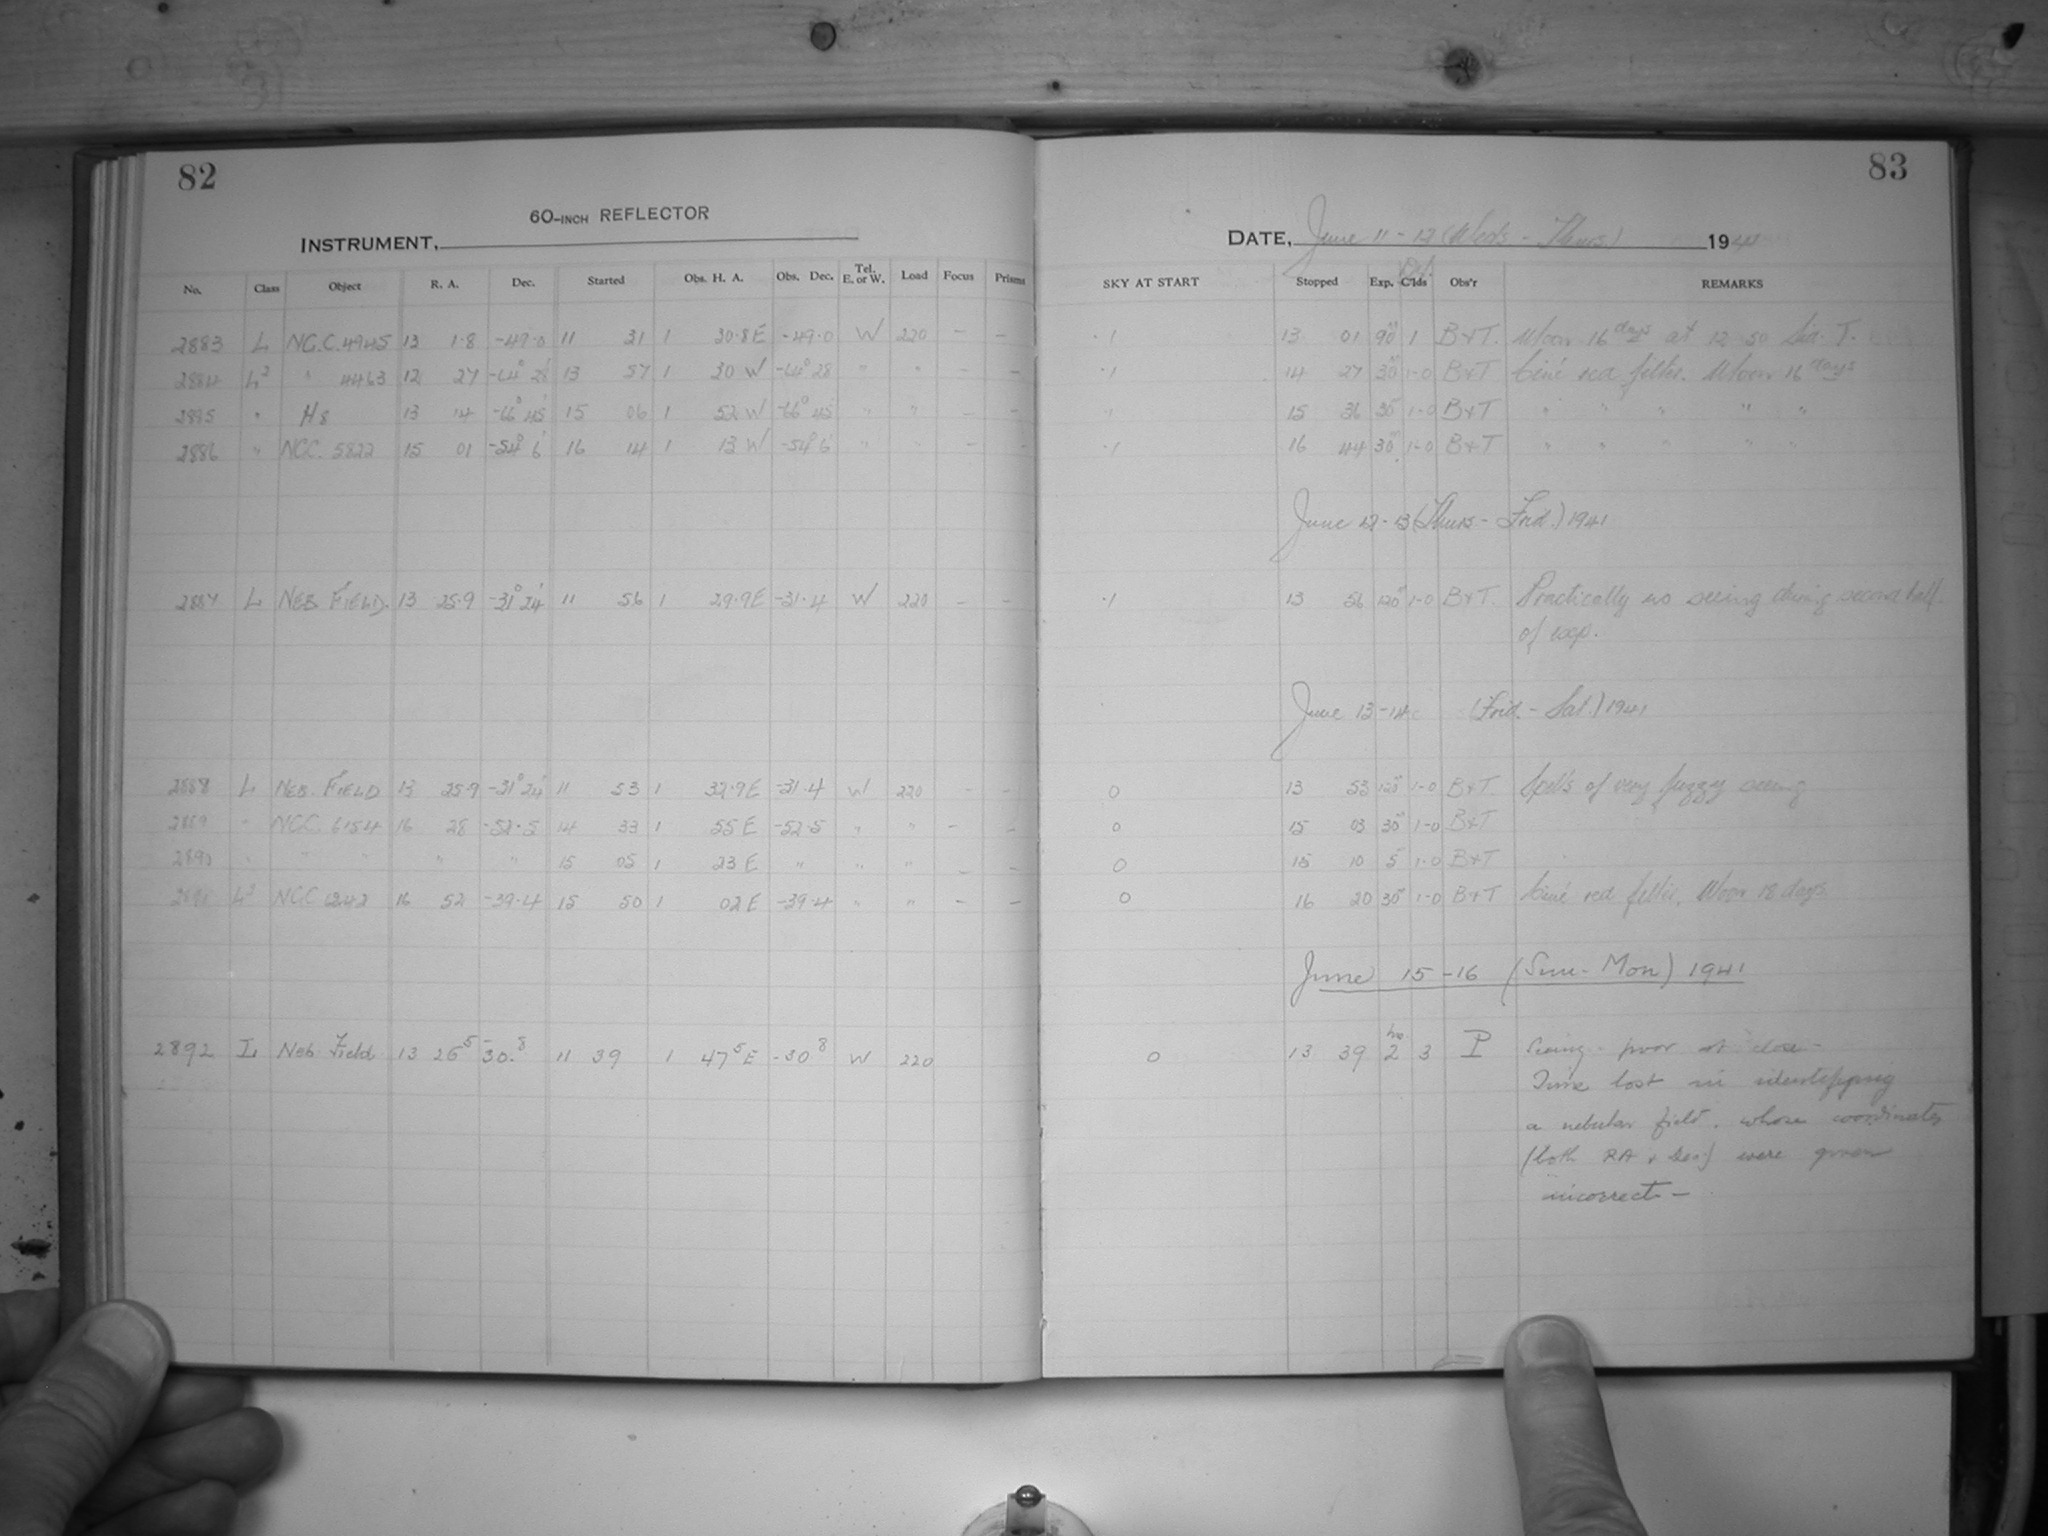 82
60-INCH REFLECTOR
INSTRUMENT,
No. Class Object R. A. Dec. Started Obs. H. A. Obs. Dec. Tel. E. or W. Load Focus Prisms
2883 L NGC. 4945 13 1·8 -49·0 11 31 1 30·8 E -49·0 W 220 — —
2884 L² " 4463 12 27 -64° 28' 13 57 1 30 W -64° 28 " " — —
2885 " H8 13 14 -66° 45' 15 06 1 52 W -66° 45 " " — —
2886 " NGC. 5822 15 01 -54° 6' 16 14 1 13 W -54° 6' " " — —
2887 L NEB. FIELD. 13 25·9 -31° 24' 11 56 1 29·9 E -31·4 W 220 — —
2888 L NEB. FIELD 13 25·9 -31° 24' 11 53 1 32·9 E -31·4 W 220 — —
2889 " NGC. 6134 16 28 -52·5 14 33 1 55 E -52·5 " " — —
2890 " " " " " 15 05 1 23 E " " " — —
2891 L² NGC 16 52 -39·4 15 50 1 02 E -39·4 " " — —
2892 L Neb. Field 13 26⁵ -30.⁸ 11 39 1 47⁵ E -30⁸ W 220
83
DATE, June 11-12 (Weds - Thurs) 1941
SKY AT START Stopped Exp. C'lds Obs'r REMARKS
·1 13 01 90ᵐ 1 B&T. Moon 16 days at 12 50 Sid. T.
·1 14 27 30ᵐ 1-0 B&T Ciné red filter. Moon 16 days
·1 15 36 30ᵐ 1-0 B&T " " " " "
·1 16 44 30ᵐ 1-0 B&T " " " " "
June 12-13 (Thurs - Frid.) 1941
·1 13 56 120ᵐ 1-0 B&T. Practically no seeing during second half
of exp.
June 13-14 (Frid. - Sat.) 1941
0 13 53 120ᵐ 1-0 B&T. Spells of very fuzzy seeing
0 15 03 30ᵐ 1-0 B&T
0 15 10 5 1-0 B&T
0 16 20 30ᵐ 1-0 B&T Ciné red filter. Moon 18 days.
June 15-16 (Sun - Mon) 1941
0 13 39 2 hrs 3 P Seeing poor at close -
Time lost in identifying
a nebular field. whose coordinates
(both RA & Dec) were given
incorrect -